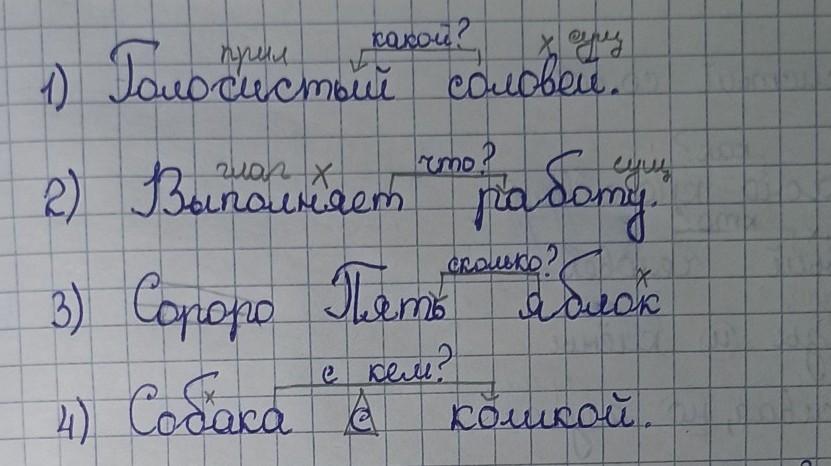 прил какой? х сущ
1) Голосистый соловей.
глаг х что? сущ
2) Выполняет работу.
сколько? х
3) Сороро Пять яблок
х с кем?
4) Собака с кошкой.